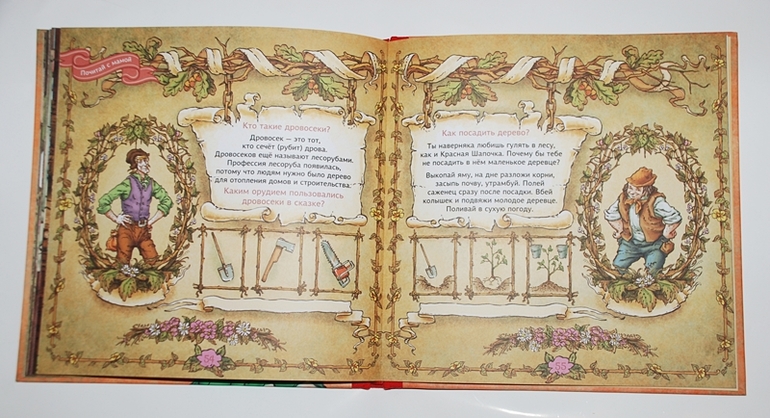 Почитай с мамой
Кто такие дровосеки?
Дровосек — это тот,
кто сечёт (рубит) дрова.
Дровосеков ещё называют лесорубами.
Профессия лесоруба появилась,
потому что людям нужно было дерево
для отопления домов и строительства.
Каким орудием пользовались
дровосеки в сказке?
Как посадить дерево?
Ты наверняка любишь гулять в лесу,
как и Красная Шапочка. Почему бы тебе
не посадить в нём маленькое деревце?
Выкопай яму, на дне разложи корни,
засыпь почву, утрамбуй. Полей
саженец сразу после посадки. Вбей
колышек и подвяжи молодое деревце.
Поливай в сухую погоду.